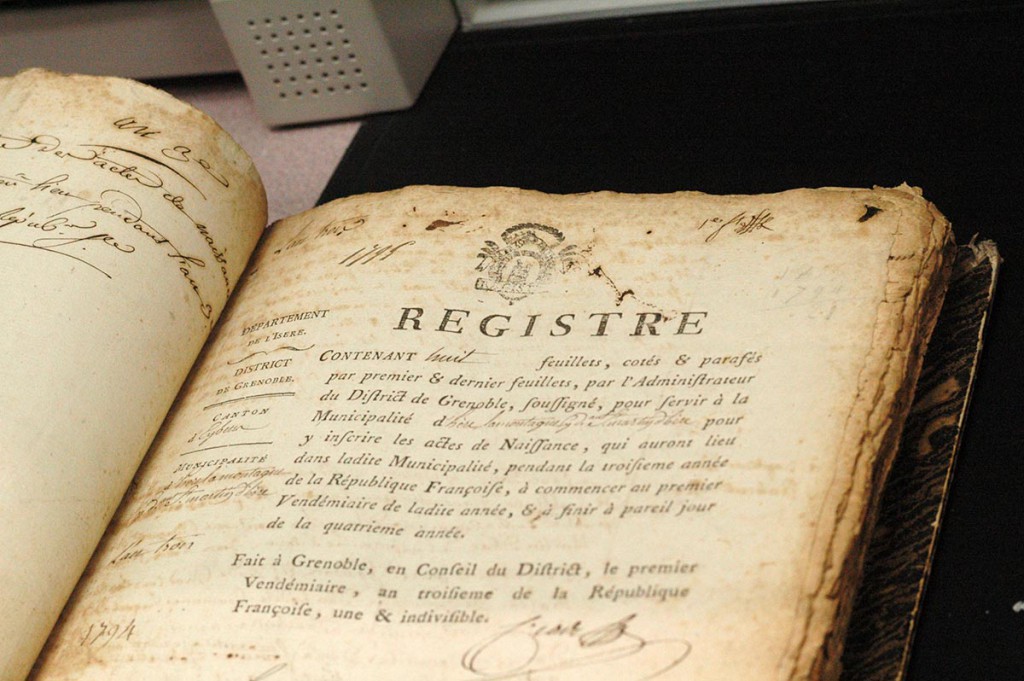 an 3e
des actes de naissan
lieu pendant
Répub.
L'an trois
1795
1er
REGISTRE
DÉPARTEMENT
DE L'ISERE.
DISTRICT
DE GRENOBLE.
CANTON
d'Eybens
MUNICIPALITÉ
L'an trois
1794
CONTENANT huit feuillets, cotés & parafés
par premier & dernier feuillets, par l'Administrateur
du District de Grenoble, souſſigné, pour ſervir à la
Municipalité d pour
y inſcrire les actes de Naiſſance, qui auront lieu
dans ladite Municipalité, pendant la troiſieme année
de la République Françoiſe, à commencer au premier
Vendémiaire de ladite année, & à finir à pareil jour
de la quatrieme année.
Fait à Grenoble, en Conſeil du Diſtrict, le premier
Vendémiaire, an troiſieme de la République
Françoiſe, une & indiviſible.